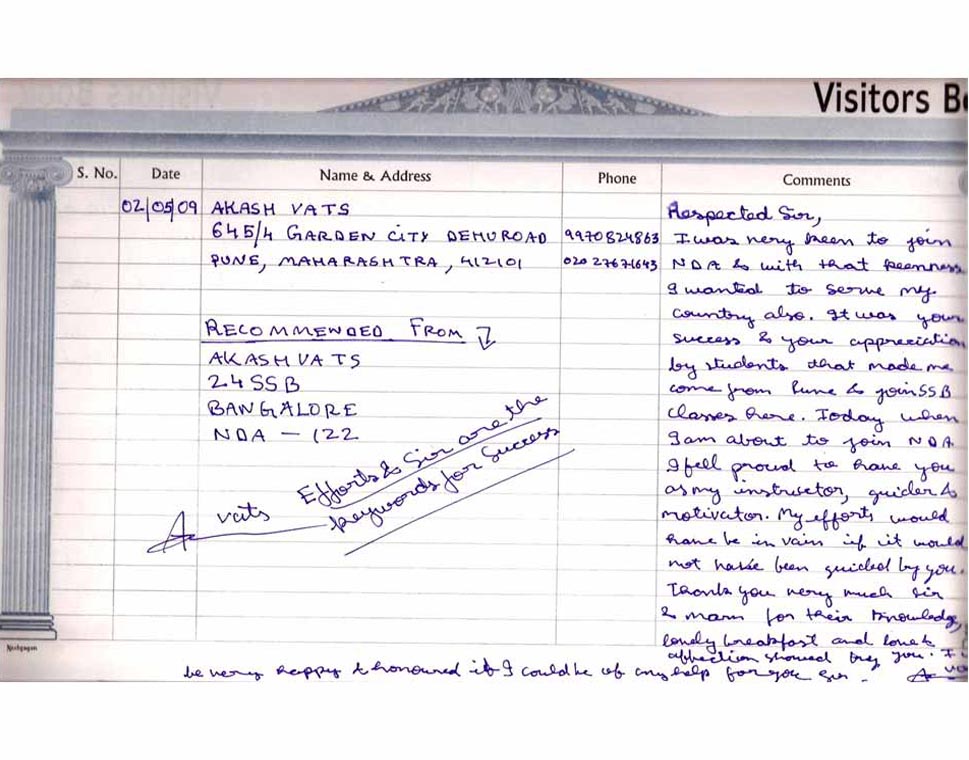 Visitors B
S. No. Date Name & Address Phone Comments
02/05/09 AKASH VATS
645/4 GARDEN CITY DEHUROAD 9970824863
PUNE, MAHARASHTRA, 412101 020 27671643
RECOMMENDED FROM
AKASH VATS
24 SSB
BANGALORE
NDA - 122
Efforts & Sir are the
keywords for success
vats
Respected Sir,
I was very keen to join
NDA & with that keenness
I wanted to serve my
country also. It was your
success & your appreciation
by students that made me
come from Pune & join SSB
classes here. Today when
I am about to join NDA
I fell proud to have you
as my instructor, guider &
motivator. My efforts would
have be in vain if it would
not have been guided by you.
Thank you very much sir
& mam for their knowledge,
lovely breakfast and love &
affection showed by you.
be very happy & honoured if I could be of any help for you sir.
Navgagan